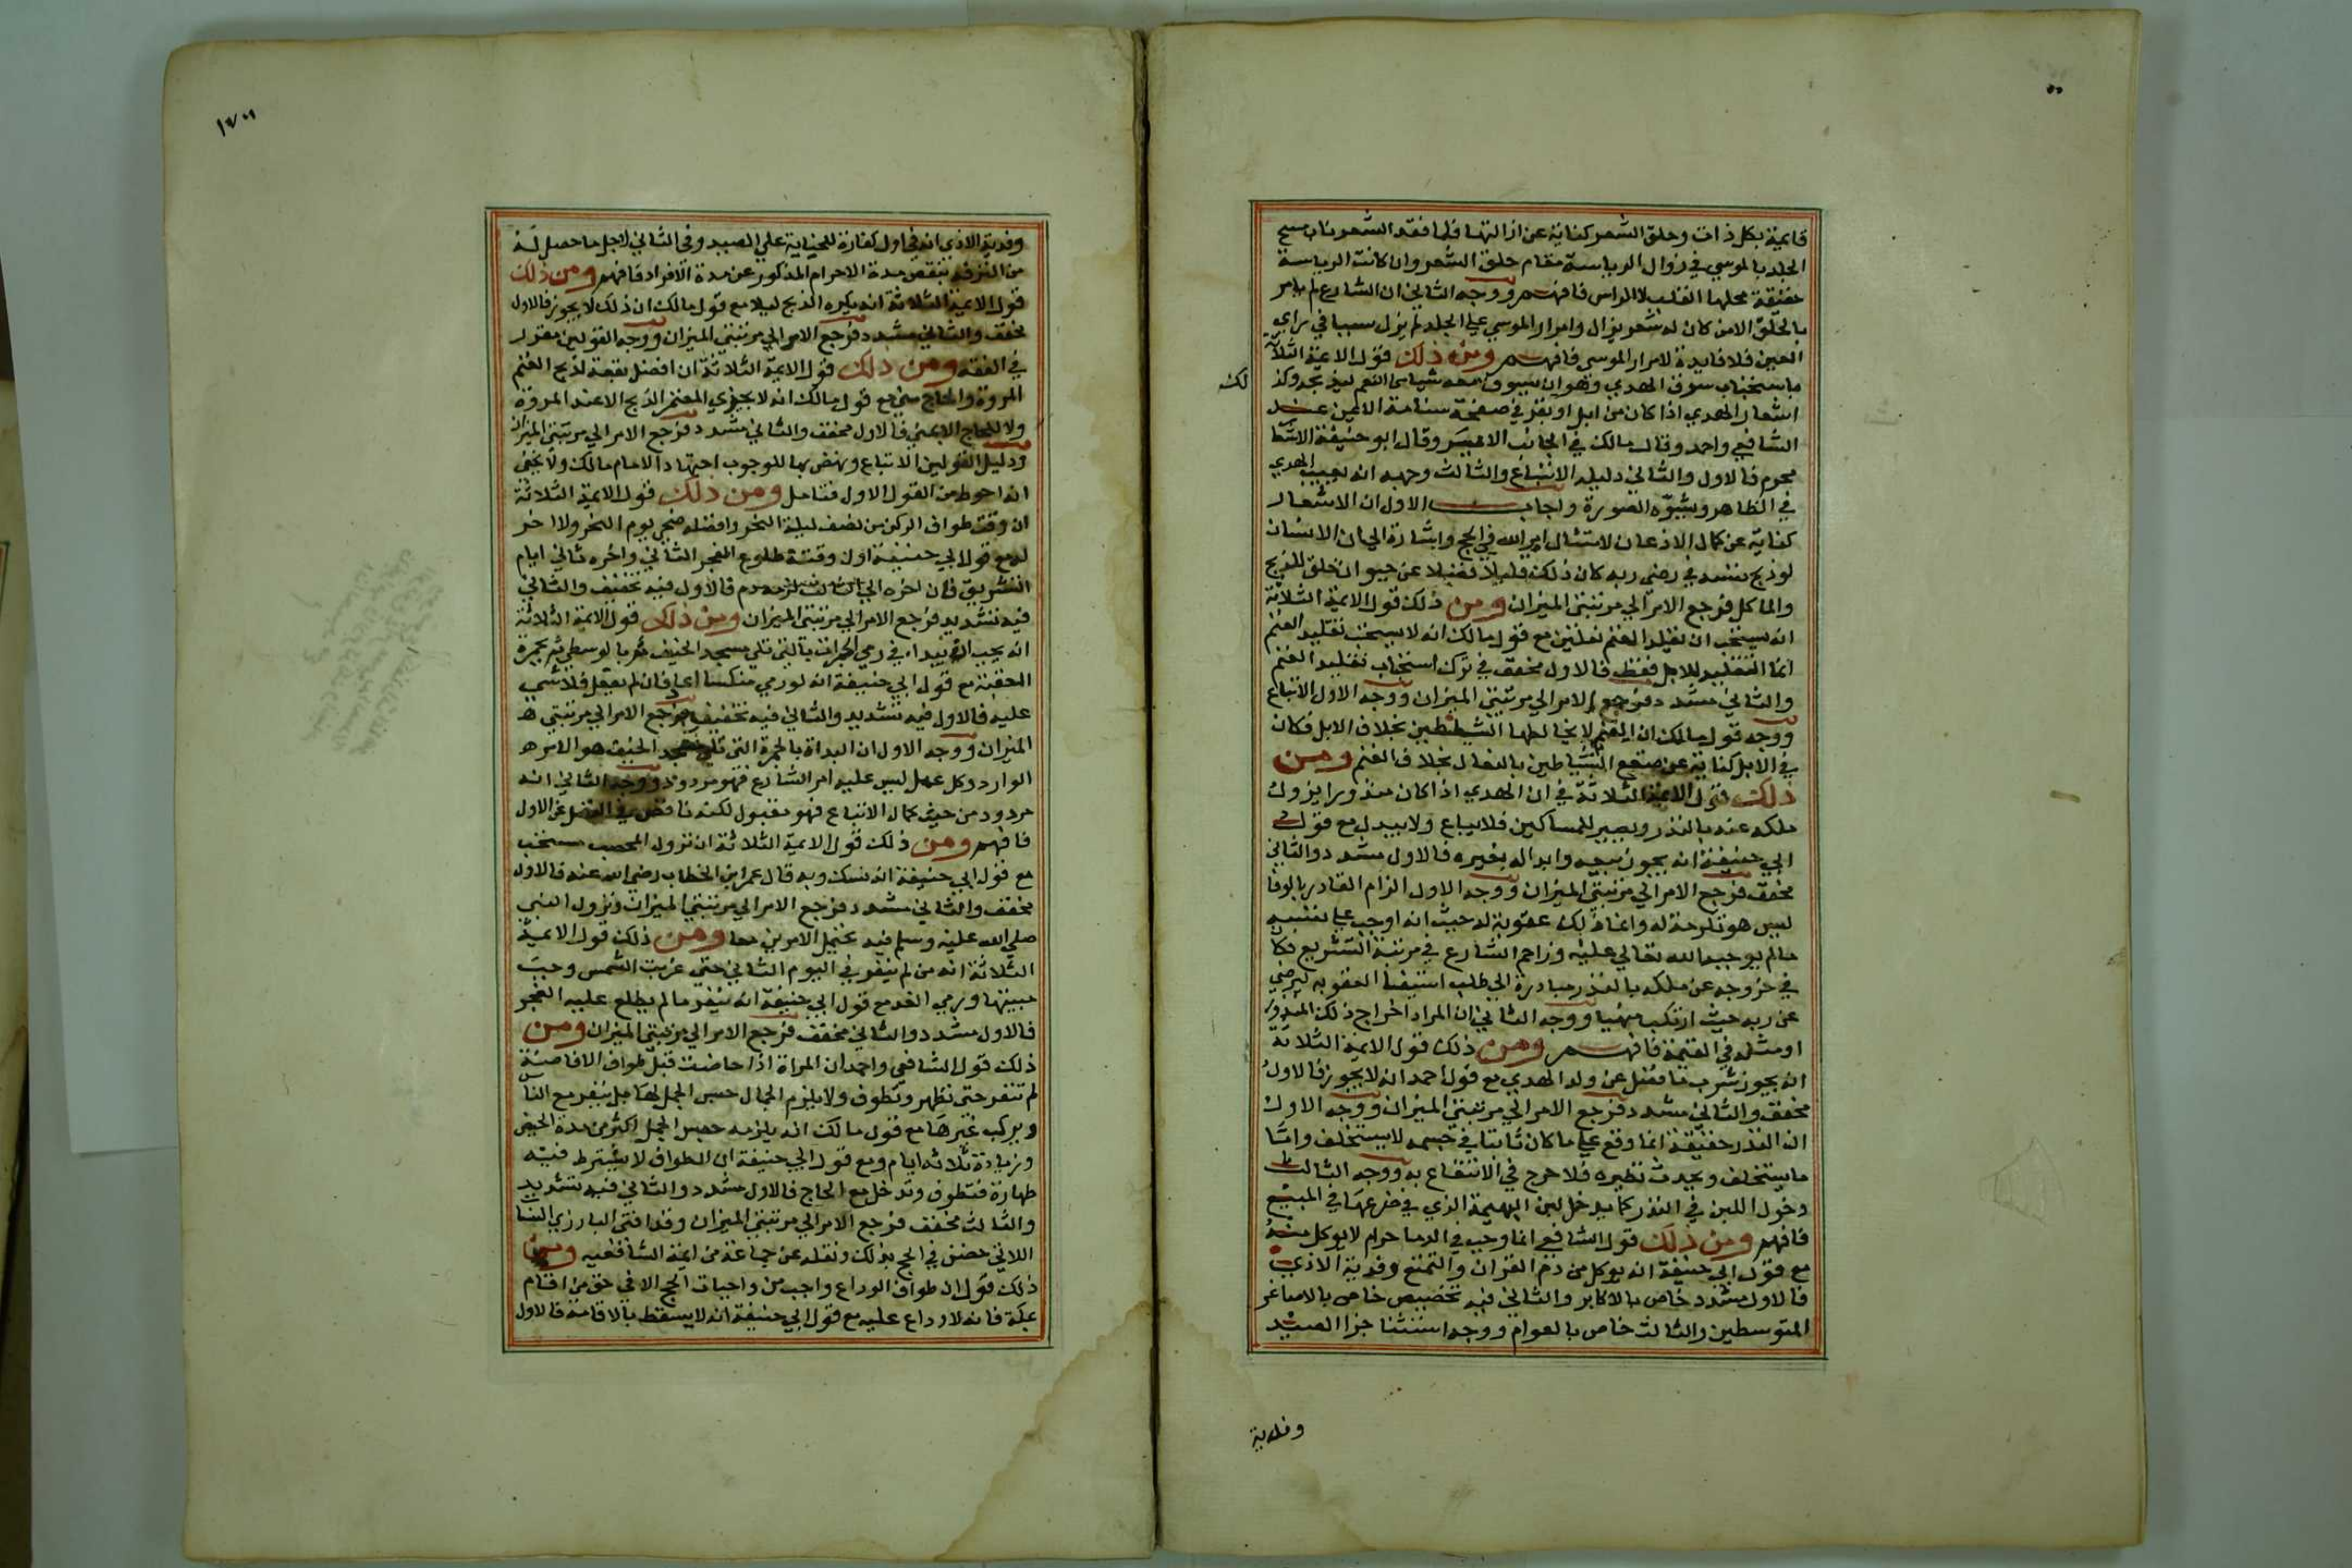 قايمة بكل ذات وحلق الشعر كناية عن ازالتها فلما فقد الشعر ناب مسح
الجلد بالموسي في زوال الرياسة مقام حلق الشعر وان كانت الرياسة
حقيقة محلها القلب لا الراس فافهم ووجه الثاني ان الشارع لم يامر
بالحلق الا من كان له شعر يزال وامرار الموسي علي الجلد لم يزل سببا في راي
العين فلا فايدة لامرار الموسي فافهم ومن ذلك قول الايمة الثلاثة
باستحباب سوق الهدي وهو ان يسوق معه شيا من النعم ليذبحه وكذ
لك
اشعار الهدي اذا كان من ابل او بقر في صفحة سنامة الايمن عند
الشافعي واحمد وقال مالك في الجانب الايسر وقال ابو حنيفة الاشعا
محرم فالاول والثاني دليله الاتباع والثالث وجهه انه يعيب الهدي
في الظاهر ويشوه الصورة واجاب الاول ان الاشعار
كناية عن كمال الاذعان لامتثال امر الله في الحج واشارة الي ان الانسان
لو ذبح نفسه في رضي ربه كان ذلك قليلا فضلا عن حيوان خلق للذبح
والماكل فرجع الامر الي مرتبتي الميزان ومن ذلك قول الايمة الثلاثة
انه يستحب ان يقلد الغنم نعلين مع قول مالك انه لا يستحب تقليد الغنم
انما التقليد للابل فقط فالاول مخفف في ترك استحباب تقليد الغنم
والثاني مشدد فرجع الامر الي مرتبتي الميزان ووجه الاول الاتباع
ووجه قول مالك ان الغنم لا يخالطها الشياطين بخلاف الابل فكان
في الابل كناية عن صفع الشياطين بالنعال بخلاف الغنم ومن
ذلك قول الايمة الثلاثة في ان الهدي اذا كان منذورا يزول
ملكه عنه بالنذر ويصير للمساكين فلا يباع ولا يبدل مع قول
ابي حنيفة انه يجوز بيعه وابداله بغيره فالاول مشدد والثاني
مخفف فرجع الامر الي مرتبتي الميزان ووجه الاول الزام القادر بالوفا
ليس هو لرحمة له وانما ذلك عقوبة له حيث انه اوجب علي نفسه
ما لم يوجبه الله تعالي عليه وزاحم الشارع في مرتبة التشريع فكان
في خروجه عن ملكه بالنذر مبادرة الي طلب استيفا العقوبه ليرضي
عن ربه حيث ارتكب منهيا ووجه الثاني ان المراد اخراج ذلك المنذور
او مثله في القيمة فافهم ومن ذلك قول الايمة الثلاثة
انه يجوز شرب ما فضل عن ولد الهدي مع قول احمد انه لا يجوز فالاول
مخفف والثاني مشدد فرجع الامر الي مرتبتي الميزان ووجه الاول
ان النذر حقيقة انما وقع علي ما كان ثابتا في جسمه لا يستخلف واما
ما يستخلف ويحدث نظيره فلا حرج في الانتفاع به ووجه الثالث
دخول اللبن في النذر كما يدخل لبن البهيمة الذي في ضرعها في المبيع
فافهم ومن ذلك قول الشافعي انما وجب في الدما حرام لا يوكل منه
مع قول ابي حنيفة انه يوكل من دم القران والتمتع وفدية الاذي
فالاول مشدد خاص بالاكابر والثاني فيه تخصيص خاص بالاصاغر
المتوسطين والثالث خاص بالعوام ووجه استثنا جزا الصيد
وفدية
وفدية الاذي انه في اول كفارة للجناية علي الصيد وفي الثاني لاجل ما حصل له
من الترفه بنقص مدة الاحرام المذكور عن مدة الافراد فافهم ومن ذلك
قول الايمة الثلاثة انه يكره الذبح ليلا مع قول مالك ان ذلك لا يجوز فالاول
مخفف والثاني مشدد فرجع الامر الي مرتبتي الميزان ووجه القولين مقرر
في الفقه ومن ذلك قول الايمة الثلاثة ان افضل بقعة لذبح الغنم
المروة والحاج مني مع قول مالك انه لا يجزي المعتمر الذبح الا عند المروة
ولا للحاج الا بمني فالاول مخفف والثاني مشدد فرجع الامر الي مرتبتي الميزان
ودليل القولين الاتباع ونهض بها للوجوب اجتهاد الامام مالك ولا يخفي
انه احوط من القول الاول فتامل ومن ذلك قول الايمة الثلاثة
ان وقت طواف الركن من نصف ليلة النحر وافضله ضحي يوم النحر ولا اخر
له مع قول ابي حنيفة اول وقته طلوع الفجر الثاني واخره ثاني ايام
التشريق فان اخره الي الثالث لزمه دم فالاول فيه تخفيف والثاني
فيه تشديد فرجع الامر الي مرتبتي الميزان ومن ذلك قول الايمة الثلاثة
انه يجب البداء في رمي الجمرات بالتي تلي مسجد الخيف ثم بالوسطي ثم بجمرة
العقبة مع قول ابي حنيفة انه لو رمي منكسا اعاد فان لم يفعل فلا شي
عليه فالاول فيه تشديد والثاني فيه تخفيف فرجع الامر الي مرتبتي
الميزان ووجه الاول ان البداة بالجمرة التي تلي مسجد الخيف هو الامر
الوارد وكل عمل ليس عليه امر الشارع فهو مردود ووجه الثاني انه
مردود من حيث كمال الاتباع فهو مقبول لكنه ناقص في الفضل عن الاول
فافهم ومن ذلك قول الايمة الثلاثة ان نزول المحصب مستحب
مع قول ابي حنيفة انه نسك وبه قال عمر ابن الخطاب رضي الله عنه فالاول
مخفف والثاني مشدد فرجع الامر الي مرتبتي الميزان ونزول النبي
صلي الله عليه وسلم فيه يحتمل الامرين معا ومن ذلك قول الايمة
الثلاثة انه من لم ينفر في اليوم الثاني حتي غربت الشمس وجب
مبيتها ورمي الغد مع قول ابي حنيفة انه ينفر ما لم يطلع عليه الفجر
فالاول مشدد والثاني مخفف فرجع الامر الي مرتبتي الميزان ومن
ذلك قول الشافعي واحمد ان المراة اذا حاضت قبل طواف الافاضة
لم تنفر حتي تطهر وتطوف ولا يلزم الجمال حبس الجمل لها بل ينفر مع الناس
ويركب غيرها مع قول مالك انه يلزمه حبس الجمل اكثر من مدة الحيض
وزيادة ثلاثة ايام ومع قول ابي حنيفة ان الطواف لا يشترط فيه
طهارة فتطوف وتدخل مع الحاج فالاول مشدد والثاني فيه تشديد
والثالث مخفف فرجع الامر الي مرتبتي الميزان وقد افتي البارزي النسا
اللاتي حضن في الحج بذلك ونقله عن جماعة من ايمة الشافعيه ومن
ذلك قول ان طواف الوداع واجب من واجبات الحج الا في حق من اقام
بمكة فانه لا وداع عليه مع قول ابي حنيفة انه لا يسقط بالاقامة فالاول